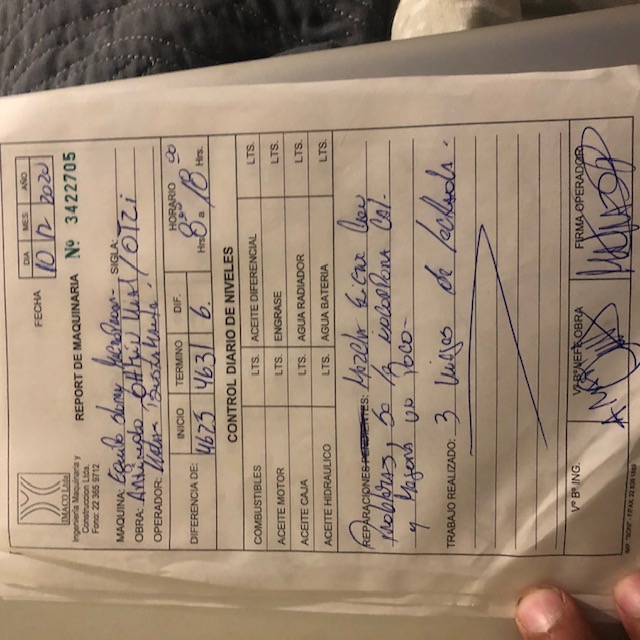 IMACO Ltda.
Ingeniería Maquinaria y
Construccion Ltda.
Fono: 22 365 9712
FECHA
DIA MES AÑO
10 12 2020
REPORT DE MAQUINARIA Nº 3422705
MAQUINA: Equipo SIGLA:
OBRA: / OTZi
OPERADOR: Matias Bustamante.
DIFERENCIA DE: INICIO TERMINO DIF.
4625 4631 6.
HORARIO
Hrs 8:00 a 18:00 Hrs.
CONTROL DIARIO DE NIVELES
COMBUSTIBLES LTS. ACEITE DIFERENCIAL LTS.
ACEITE MOTOR LTS. ENGRASE LTS.
ACEITE CAJA LTS. AGUA RADIADOR LTS.
ACEITE HIDRAULICO LTS. AGUA BATERIA LTS.
REPARACIONES PENDIENTES: Mezcla Sigue Con
Problemas, se le incorpora Cal.
y Mejora un Poco-
TRABAJO REALIZADO: 3 Viajes de lechada.
Vº Bº ING. Vº Bº JEFE OBRA FIRMA OPERADOR